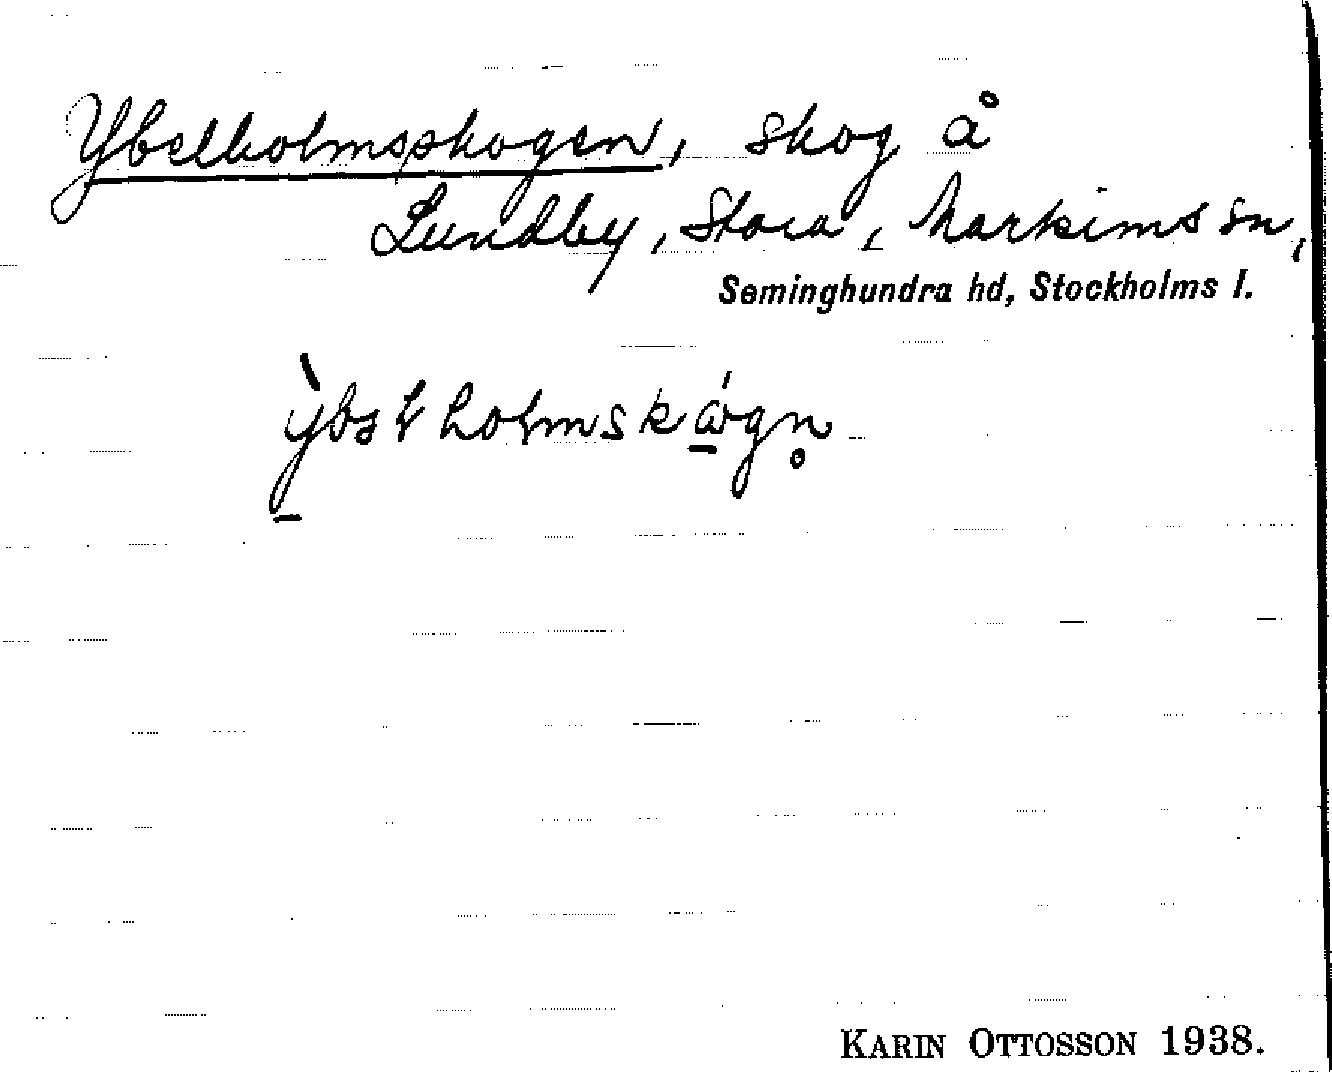 Ybelholmsskogen, skog å
Lundby, Stora, Markims sn,
Seminghundra hd, Stockholms l.
KARIN OTTOSSON 1938.